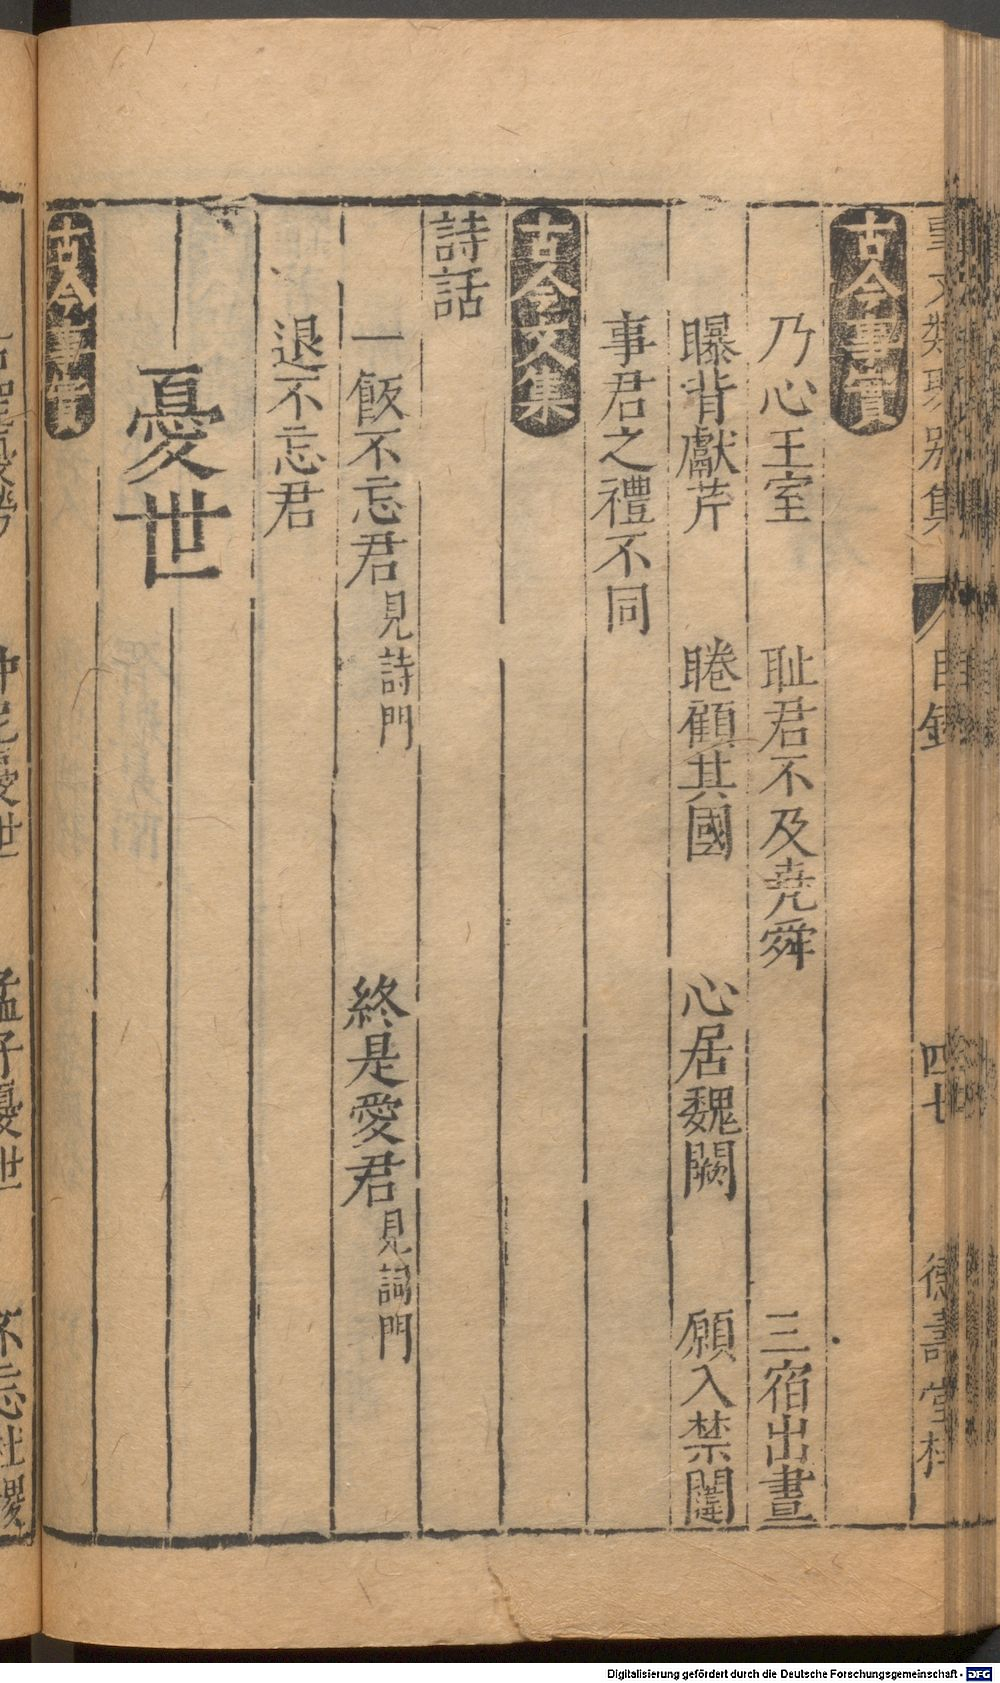 事文類聚別集 目錄 四七 德壽堂梓
古今事實
乃心王室 耻君不及堯舜 三宿出晝
曝背獻芹 睠顧其國 心居魏闕 願入禁闥
事君之禮不同
古今文集
詩話
一飯不忘君見詩門 終是愛君見詞門
退不忘君
憂世
古今事實
仲尼憂世 孟子憂世 不忘社稷
Digitalisierung gefördert durch die Deutsche Forschungsgemeinschaft - DFG